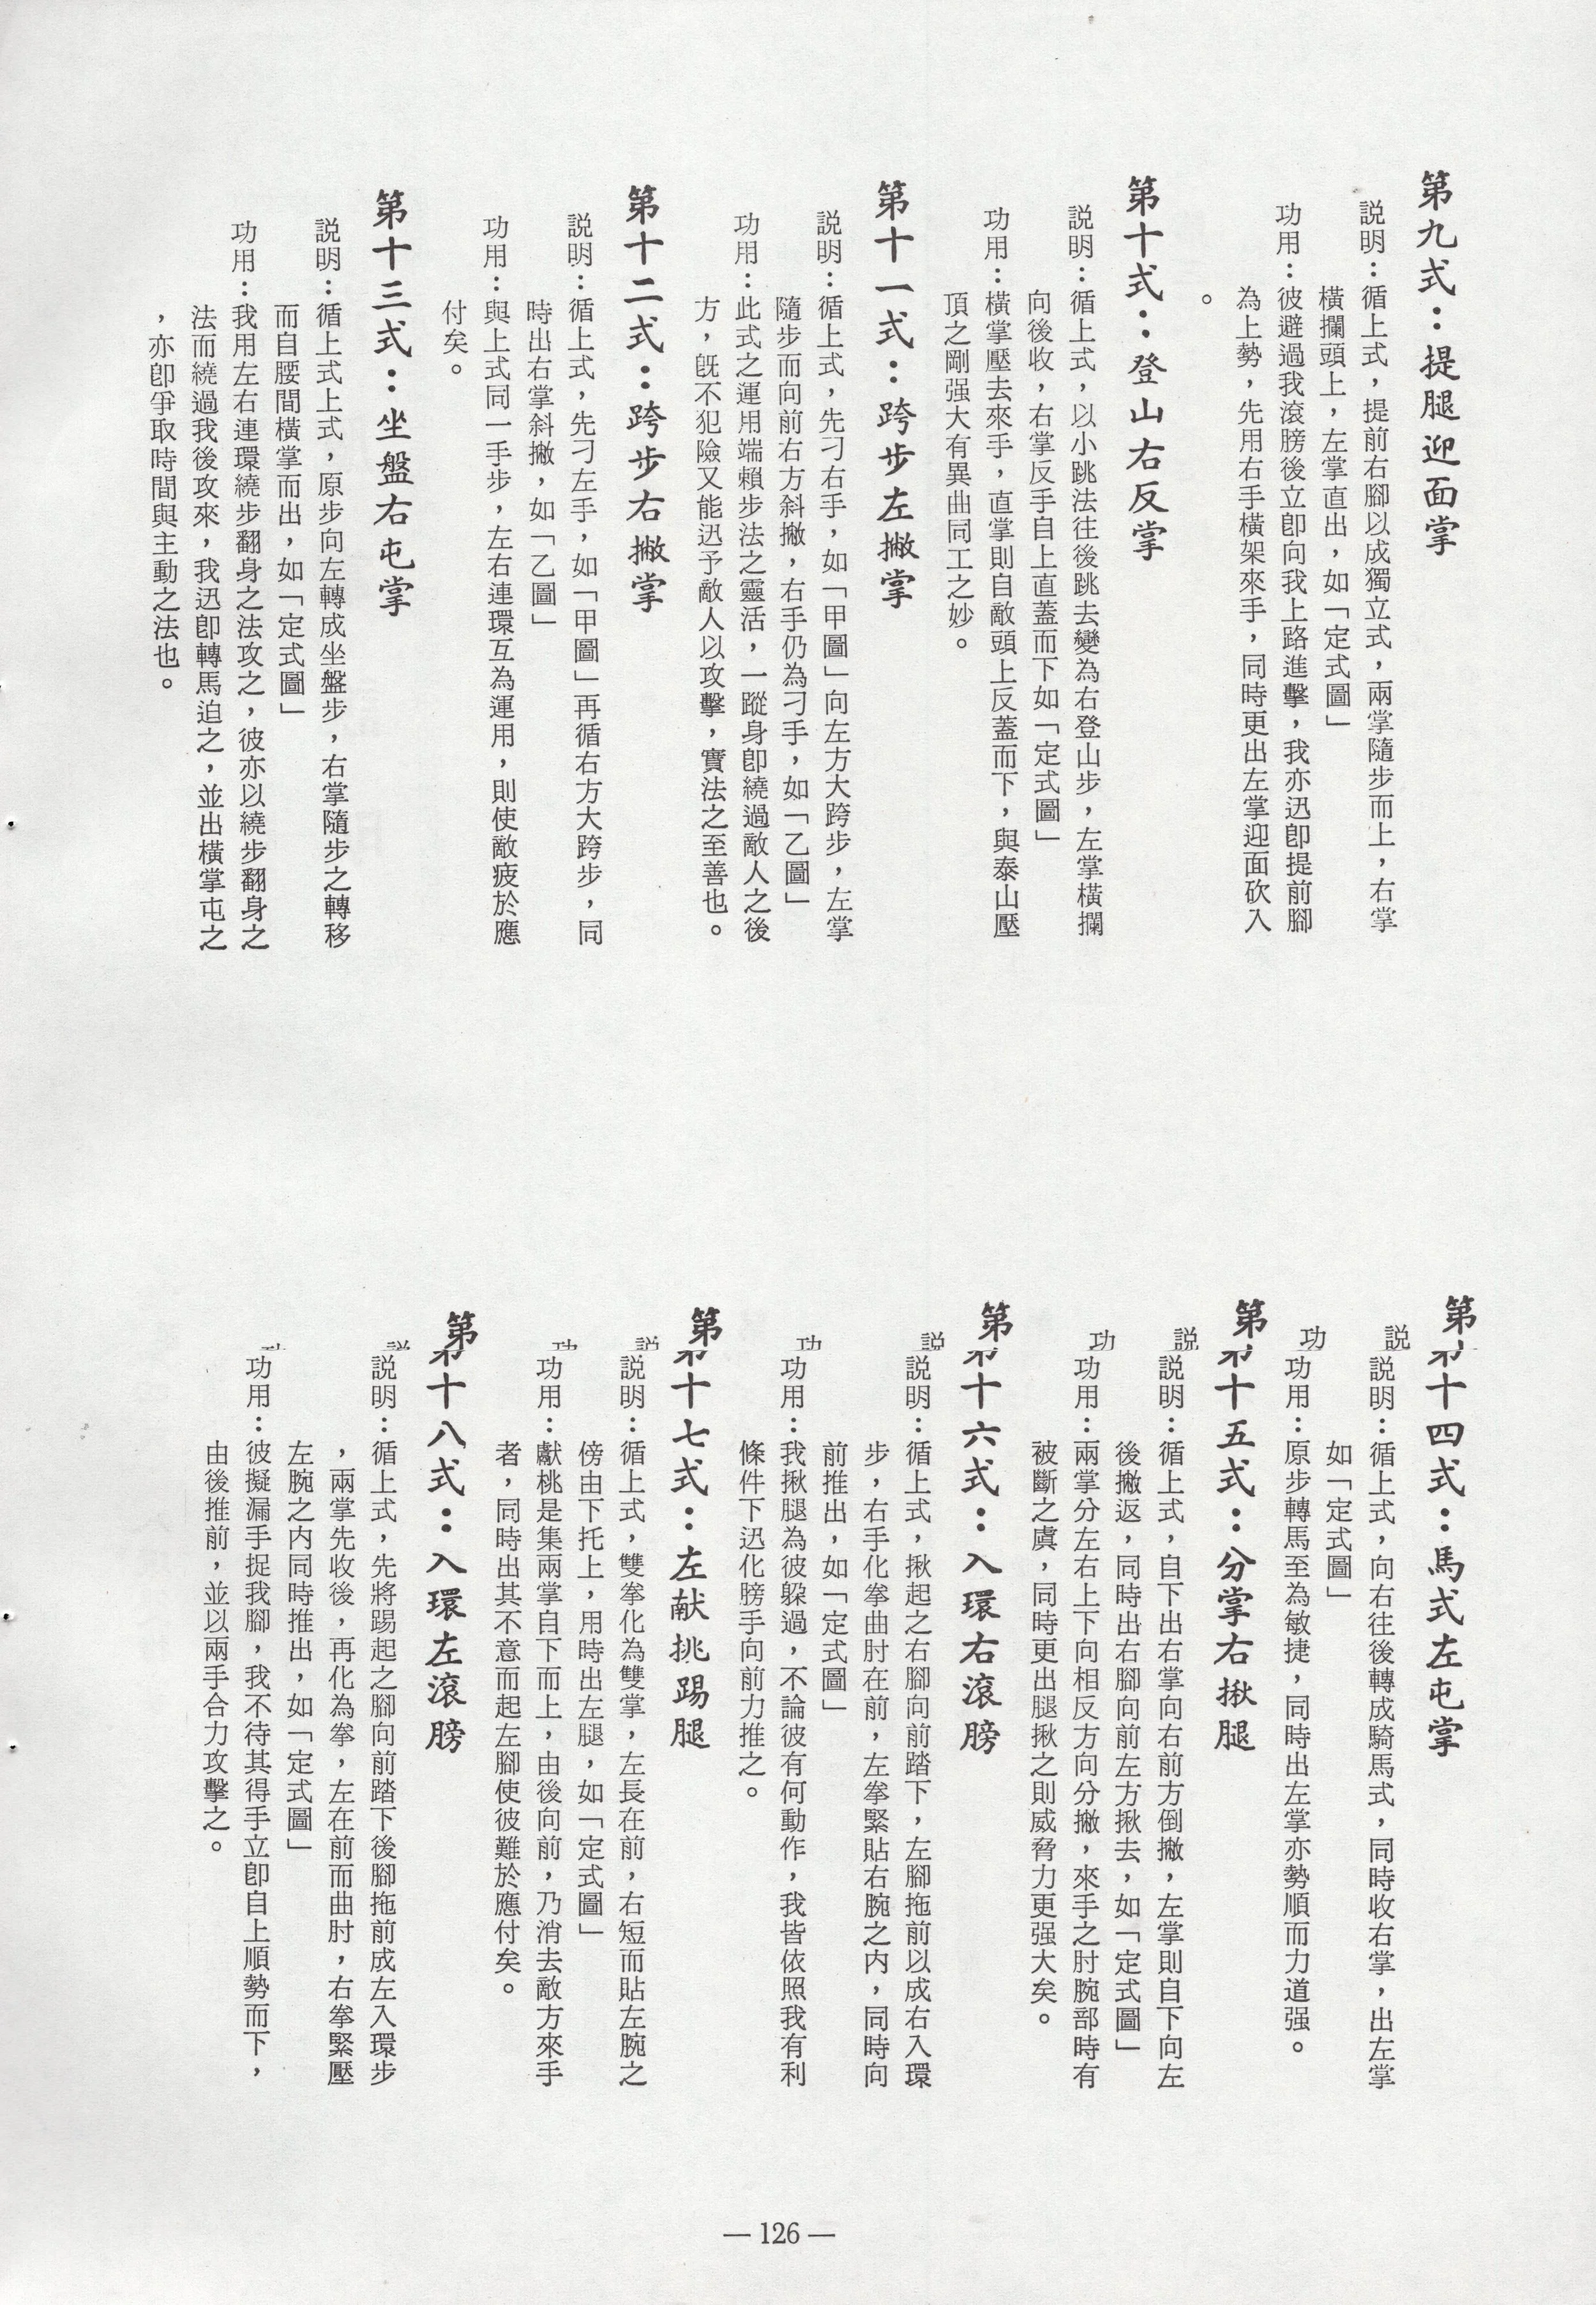 第九式：提腿迎面掌
說明：循上式，提前右腳以成獨立式，兩掌隨步而上，右掌
橫攔頭上，左掌直出，如「定式圖」
功用：彼避過我滾膀後立卽向我上路進擊，我亦迅卽提前腳
為上勢，先用右手橫架來手，同時更出左掌迎面砍入
。
第十式：登山右反掌
說明：循上式，以小跳法往後跳去變為右登山步，左掌橫攔
向後收，右掌反手自上直蓋而下如「定式圖」
功用：橫掌壓去來手，直掌則自敵頭上反蓋而下，與泰山壓
頂之剛强大有異曲同工之妙。
第十一式：跨步左撇掌
說明：循上式，先刁右手，如「甲圖」向左方大跨步，左掌
隨步而向前右方斜撇，右手仍為刁手，如「乙圖」
功用：此式之運用端賴步法之靈活，一蹤身卽繞過敵人之後
方，旣不犯險又能迅予敵人以攻擊，實法之至善也。
第十二式：跨步右撇掌
說明：循上式，先刁左手，如「甲圖」再循右方大跨步，同
時出右掌斜撇，如「乙圖」
功用：與上式同一手步，左右連環互為運用，則使敵疲於應
付矣。
第十三式：坐盤右屯掌
說明：循上式上式，原步向左轉成坐盤步，右掌隨步之轉移
而自腰間橫掌而出，如「定式圖」
功用：我用左右連環繞步翻身之法攻之，彼亦以繞步翻身之
法而繞過我後攻來，我迅卽轉馬迫之，並出橫掌屯之
，亦卽爭取時間與主動之法也。
第十四式：馬式左屯掌
說明：循上式，向右往後轉成騎馬式，同時收右掌，出左掌
如「定式圖」
功用：原步轉馬至為敏捷，同時出左掌亦勢順而力道强。
第十五式：分掌右揪腿
說明：循上式，自下出右掌向右前方倒撇，左掌則自下向左
後撇返，同時出右腳向前左方揪去，如「定式圖」
功用：兩掌分左右上下向相反方向分撇，來手之肘腕部時有
被斷之虞，同時更出腿揪之則威脅力更强大矣。
第十六式：入環右滾膀
說明：循上式，揪起之右腳向前踏下，左腳拖前以成右入環
步，右手化拳曲肘在前，左拳緊貼右腕之內，同時向
前推出，如「定式圖」
功用：我揪腿為彼躲過，不論彼有何動作，我皆依照我有利
條件下迅化膀手向前力推之。
第十七式：左献挑踢腿
說明：循上式，雙拳化為雙掌，左長在前，右短而貼左腕之
傍由下托上，用時出左腿，如「定式圖」
功用：獻桃是集兩掌自下而上，由後向前，乃消去敵方來手
者，同時出其不意而起左腳使彼難於應付矣。
第十八式：入環左滾膀
說明：循上式，先將踢起之腳向前踏下後腳拖前成左入環步
，兩掌先收後，再化為拳，左在前而曲肘，右拳緊壓
左腕之內同時推出，如「定式圖」
功用：彼擬漏手捉我腳，我不待其得手立卽自上順勢而下，
由後推前，並以兩手合力攻擊之。
— 126 —